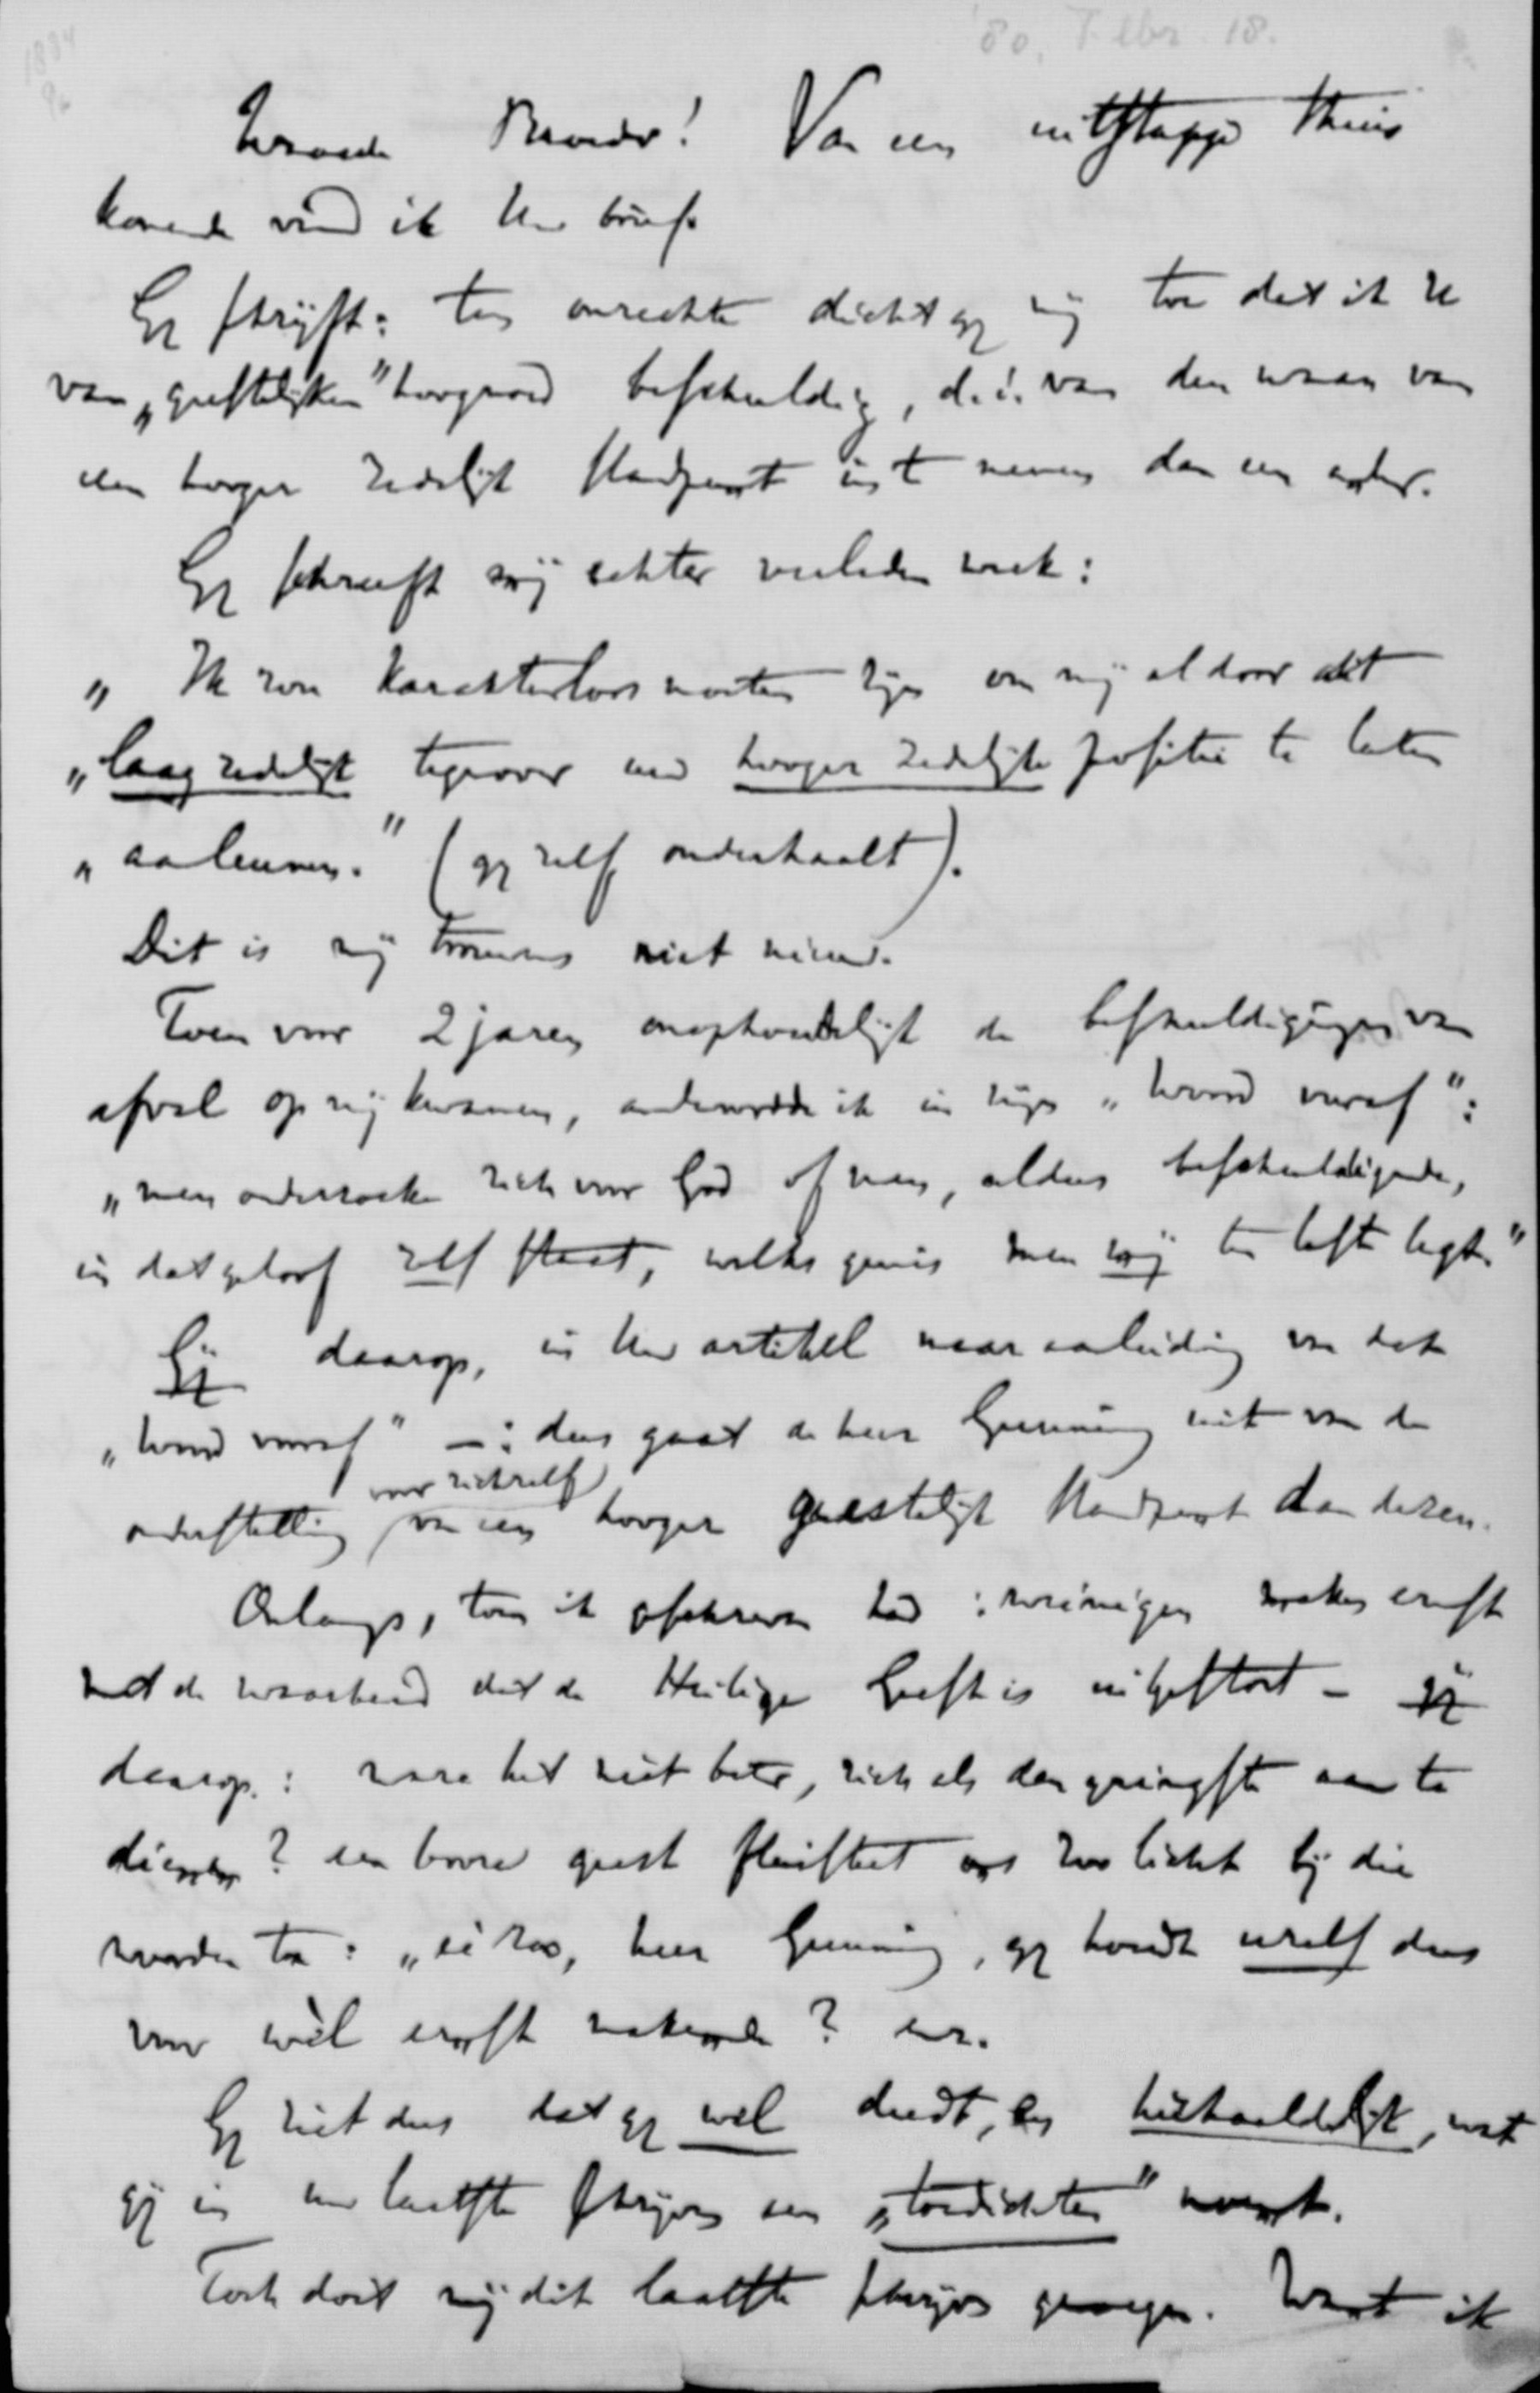 '80. Febr. 18.
Waarde Broeder! Van een uitstapje thuis
komende vind ik Uw brief.
Gij schrijft: ten onrechte dicht gij mij toe dat ik U
van „geestelijken" hoogmoed beschuldig, d.i. van den waan van
een hooger zedelijk standpunt in te nemen dan een ander.
Gij schreeft mij echter verleden week:
„Ik zou karakterloos moeten zijn om mij al door dit
„laag zedelijk tegenover uw hooger zedelijke positie te laten
„aanleunen." (gij zelf onderhaalt).
Dit is mij trouwens niet nieuw.
Toen voor 2 jaren onophoudelijk de beschuldigingen van
afval op mij kwamen, antwoordde ik in mijn „Woord vooraf":
„men onderzoeke zich voor God of men, aldus beschuldigende,
in dat geloof zelf staat, welks gemis men mij ten laste legt."
Gij daarop, in Uw artikel naar aanleiding van dat
„Woord vooraf" —: dus gaat de heer Gunning uit van de
voor zichzelf
onderstelling van een hooger geestelijk standpunt dan dezen.
Onlangs, toen ik geschreven had: weinigen maken ernst
met de waarheid dat de Heilige Geest is uitgestort – gij
daarop: ware het niet beter, zich als den geringste aan te
dienen? een booze geest fluistert ons zoo licht bij die
woorden toe: „ei zoo, heer Gunning, gij houdt uzelf dus
voor wèl ernst makende? enz.
Gij ziet dus dat gij wel deedt, en herhaaldelijk, wat
gij in uw laatste schrijven een „toedichten" noemt.
Toch doet mij dit laatste schrijven genoegen. Want ik